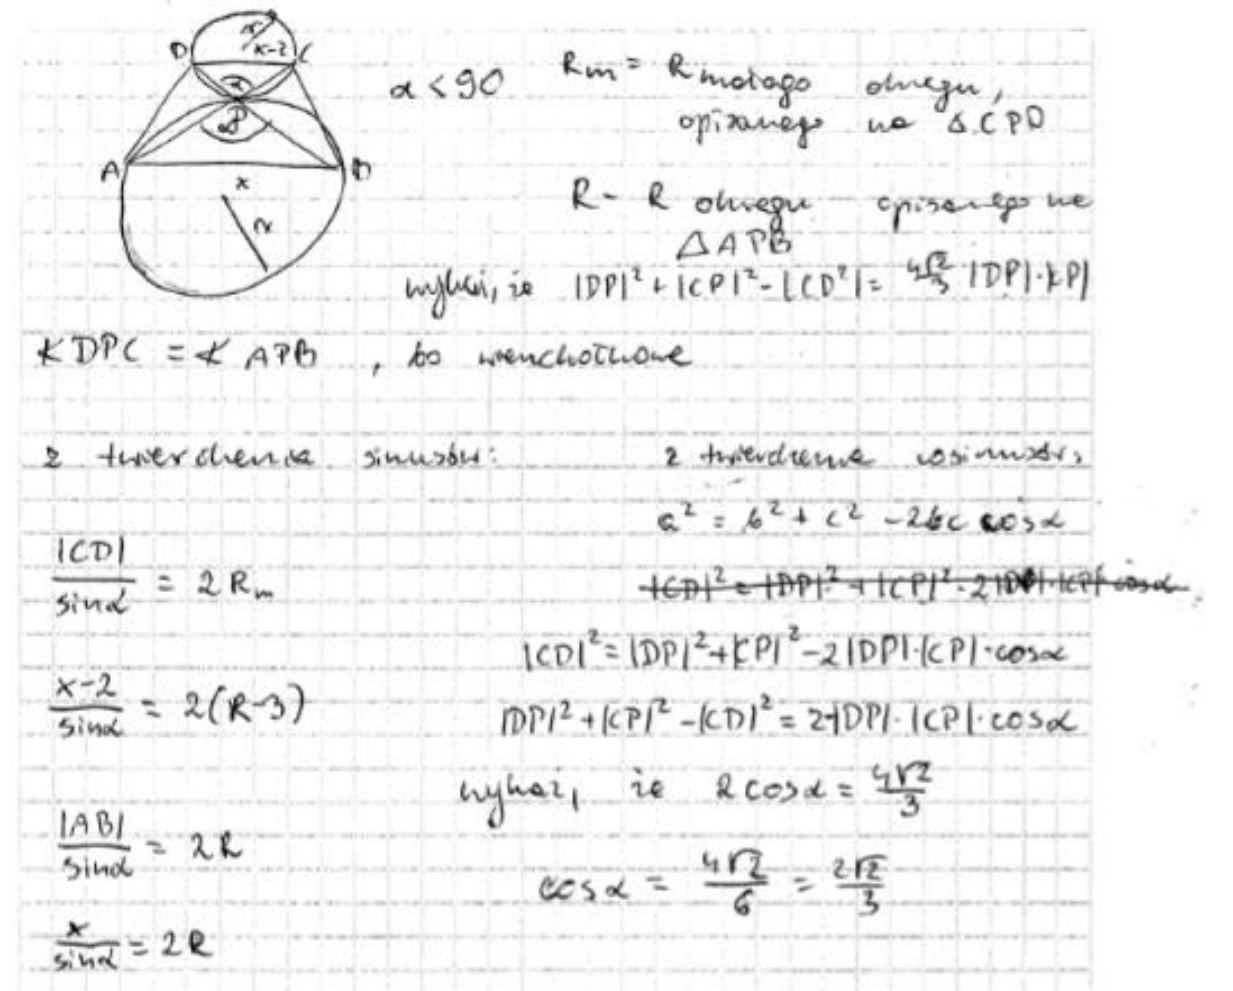 D r x-2 C
α
P
β
A B
x
r
α < 90
Rm = R małego okręgu,
opisanego na ΔCPD
R - R okręgu opisanego na
ΔAPB
wykaż, że |DP|² + |CP|² - |CD²| = 4√2/3 |DP|·|CP|
∢DPC = ∢APB, bo wierzchołkowe
z twierdzenia sinusów:
|CD|/sinα = 2Rm
x-2/sinα = 2(R-3)
|AB|/sinα = 2R
x/sinα = 2R
z twierdzenia cosinusów:
a² = b² + c² - 2bc cosα
|CD|² = |DP|² + |CP|² - 2|DP|·|CP| cosα
|CD|² = |DP|² + |CP|² - 2|DP|·|CP|·cosα
|DP|² + |CP|² - |CD|² = 2·|DP|·|CP|·cosα
wykaż, że 2cosα = 4√2/3
cosα = 4√2/6 = 2√2/3